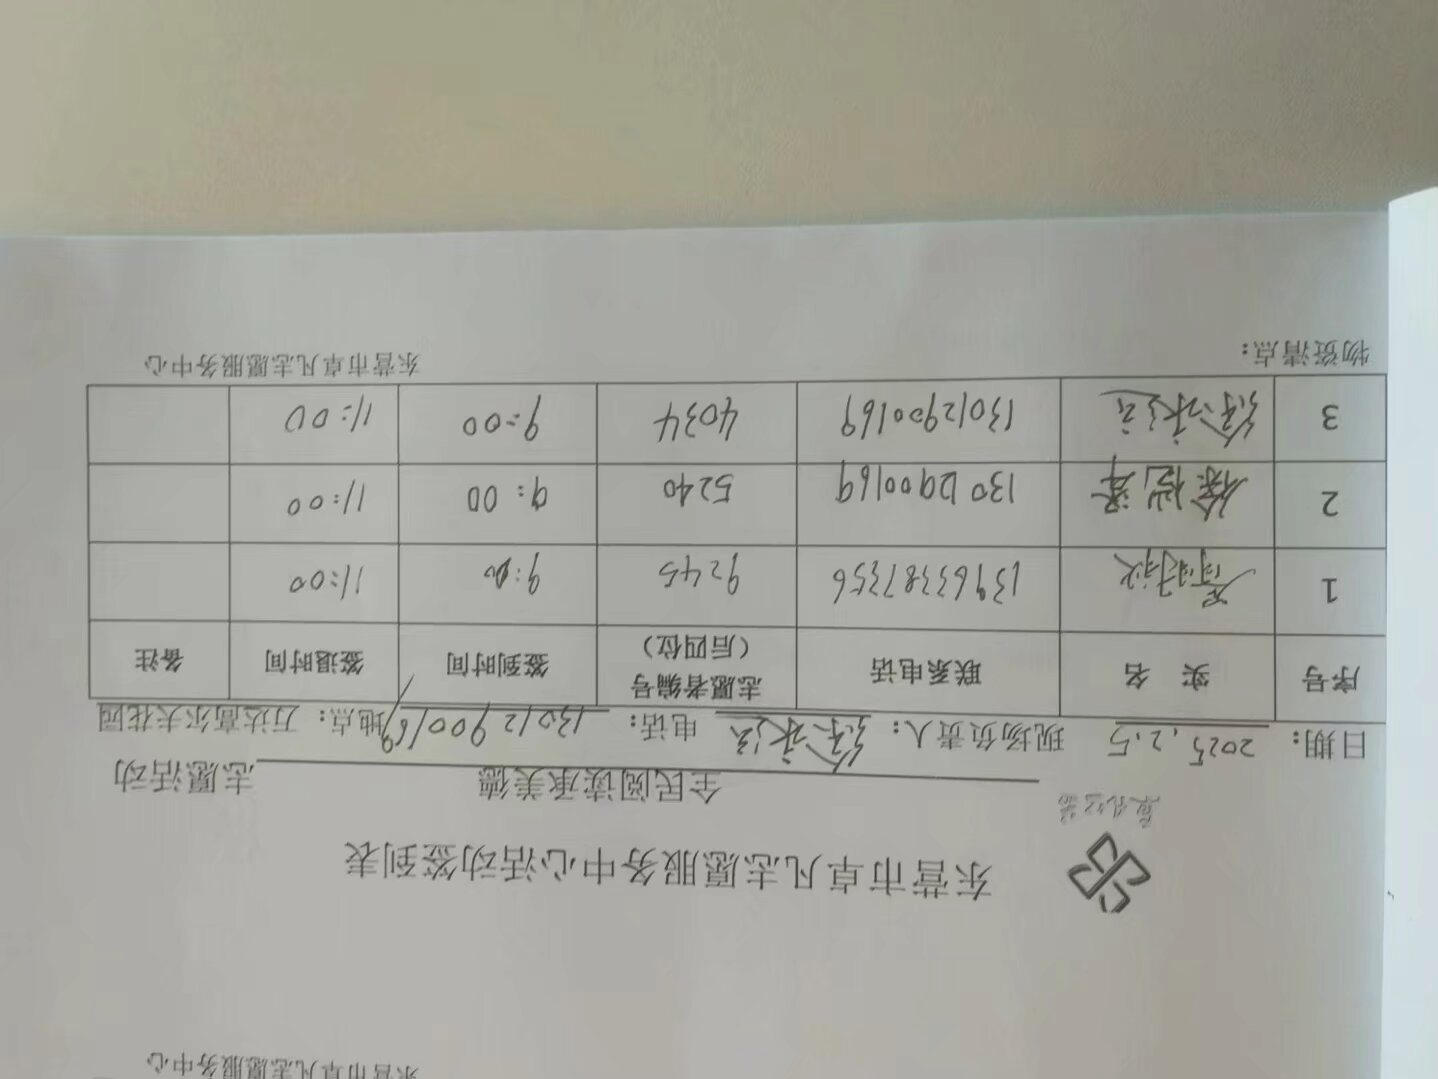 东营市卓凡志愿服务中心活动签到表
全民阅读承美德 志愿活动
日期：2025.2.5 现场负责人：徐永 电话：13012900169 地点：万达高尔夫花园
序号 实 名 联系电话 志愿者编号（后四位） 签到时间 签退时间 备注
1 13963387356 9245 9:00 11:00
2 13012900169 5240 9:00 11:00
3 徐永 13012900169 4034 9:00 11:00
物资清点： 东营市卓凡志愿服务中心
东营市卓凡志愿服务中心